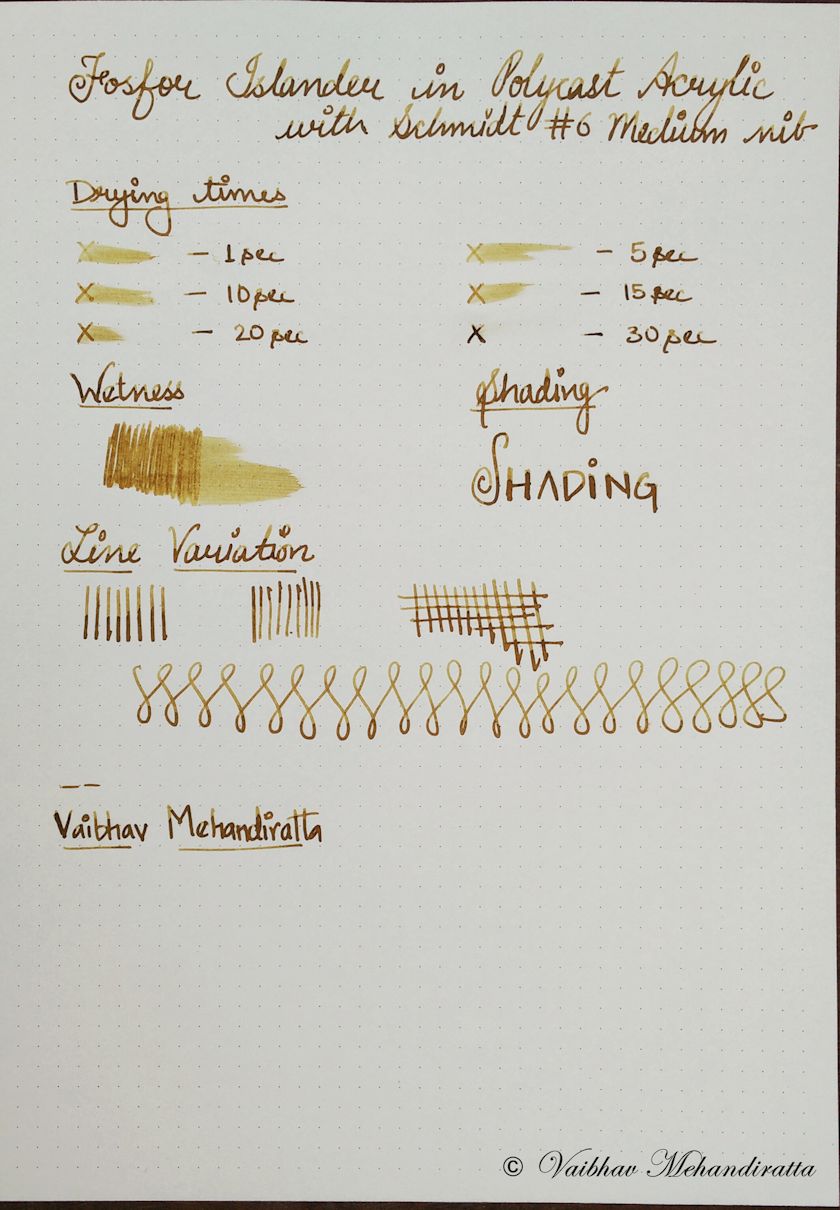 Fosfor Islander in Polycast Acrylic
with Schmidt #6 Medium nib
Drying times
X — 1 sec
X — 5 sec
X — 10 sec
X — 15 sec
X — 20 sec
X — 30 sec
Wetness
Shading
SHADiNG
Line Variation
--
Vaibhav Mehandiratta
© Vaibhav Mehandiratta